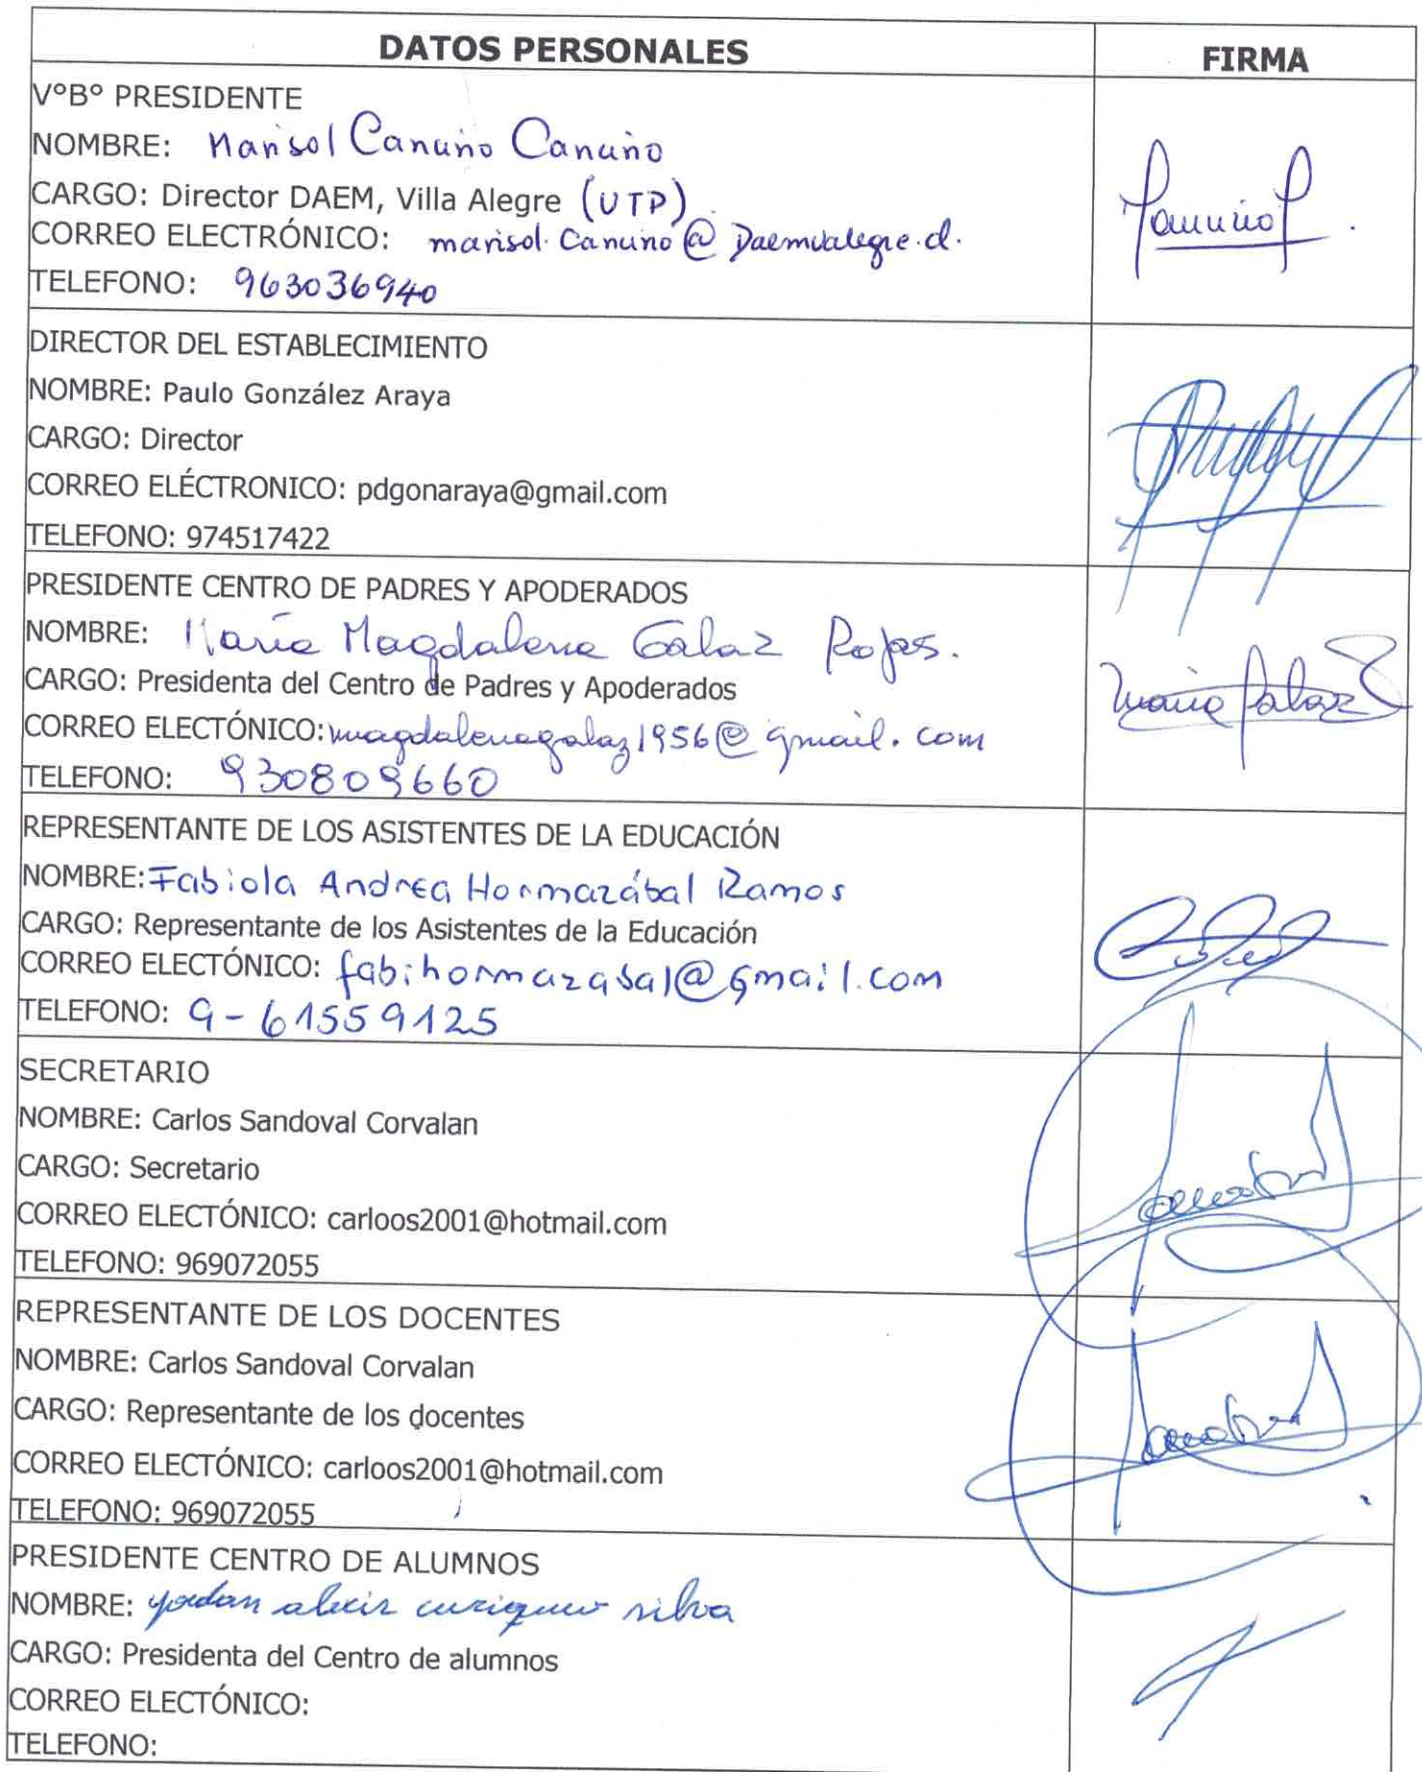 DATOS PERSONALES
FIRMA
V°B° PRESIDENTE
NOMBRE: Marisol Canuño Canuño
CARGO: Director DAEM, Villa Alegre (UTP)
CORREO ELECTRÓNICO: marisol.Canuno@
TELEFONO: 963036940
DIRECTOR DEL ESTABLECIMIENTO
NOMBRE: Paulo González Araya
CARGO: Director
CORREO ELÉCTRONICO: pdgonaraya@gmail.com
TELEFONO: 974517422
PRESIDENTE CENTRO DE PADRES Y APODERADOS
NOMBRE: María Magdalena Galaz Rojas.
CARGO: Presidenta del Centro de Padres y Apoderados
CORREO ELECTÓNICO: magdalenagalaz1956@gmail.com
TELEFONO: 930809660
maria Galaz
REPRESENTANTE DE LOS ASISTENTES DE LA EDUCACIÓN
NOMBRE: Fabiola Andrea Hormazábal Ramos
CARGO: Representante de los Asistentes de la Educación
CORREO ELECTÓNICO: fabihormazabal@gmail.com
TELEFONO: 9-61559125
SECRETARIO
NOMBRE: Carlos Sandoval Corvalan
CARGO: Secretario
CORREO ELECTÓNICO: carloos2001@hotmail.com
TELEFONO: 969072055
REPRESENTANTE DE LOS DOCENTES
NOMBRE: Carlos Sandoval Corvalan
CARGO: Representante de los docentes
CORREO ELECTÓNICO: carloos2001@hotmail.com
TELEFONO: 969072055
PRESIDENTE CENTRO DE ALUMNOS
NOMBRE: silva
CARGO: Presidenta del Centro de alumnos
CORREO ELECTÓNICO:
TELEFONO: